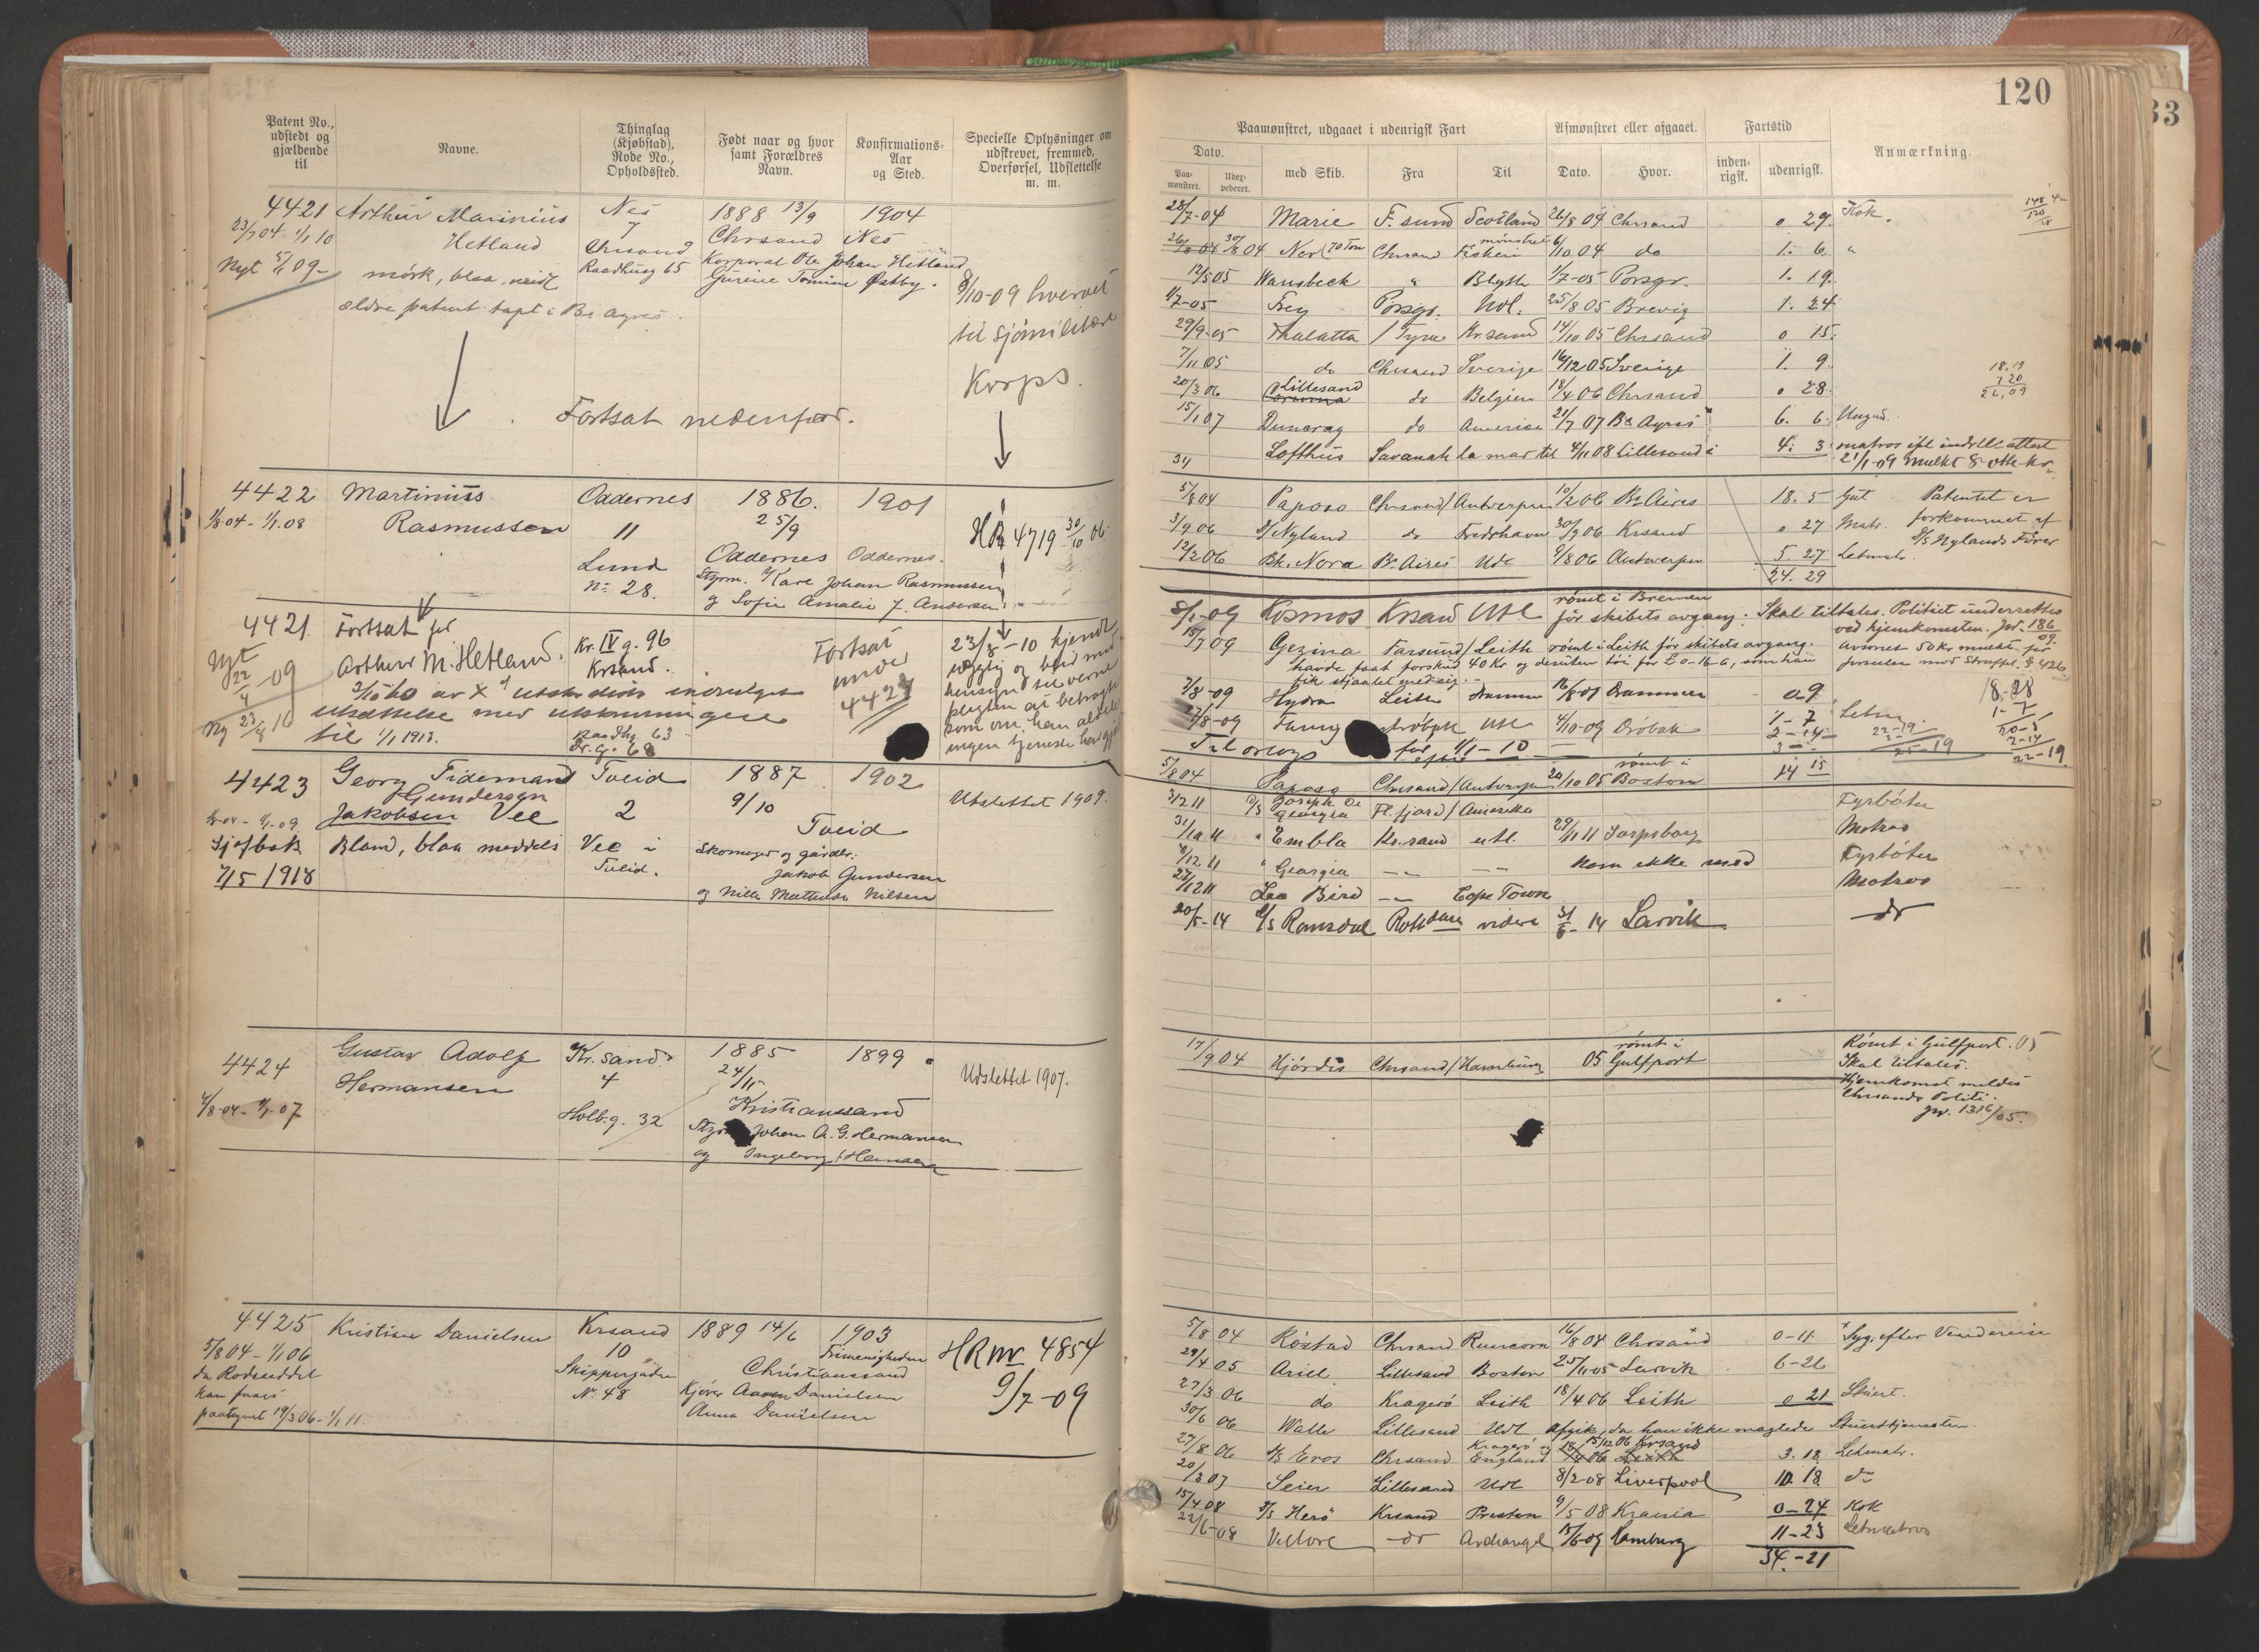 120
33
Patent No., udstedt og gjældende til
Navne.
Thinglag (Kjøbstad), Rode No., Opholdssted.
Født naar og hvor samt Forældres Navn.
Konfirmations-Aar og Sted.
Specielle Oplysninger om udskrevet, fremmed, Overførsel, Udslettelse m. m.
Paamønstret, udgaaet i udenrigsk Fart
Afmønstret eller afgaaet.
Fartstid
Anmærkning.
Dato.
Paa-mønstret.
med Skib.
Fra
Til
Dato.
Hvor.
inden-rigsk.
udenrigsk.
4421 Arthur Marinius Nes 1888 13/9 1904
23/7 04 - 1/1 10 Hetland 7 Chrsand Nes
Nyt 5/1 09 - Chrsand Korporal Ole Johan Hetland
mørk, blaa Raadhusg 65 Gurine Tomine Østby.
ældre patent tapt i Bs Ayres.
8/10-09 hvervet
til sjømilitære
Korps.
Fortsat nedenfor.
28/7-04 Marie F.sund Scotland 26/8 04 Chrsand 0 29. Kok.
30/8 04 Nor (70 Ton Chrsand Fiskeri mønstret 6/10 04 do 1. 6. "
12/5 05 Wansbeck " Blyth 1/7-05 Porsgr. 1. 19.
1/7-05 Frey Porsgr. Udl. 25/8 05 Brevig 1. 24
29/9-05 Thalatta / Tyne Kr.sand 14/10 05 Chrsand 0 15.
7/11 05 do Chrsand Sverige 16/12 05 Sverige 1. 9.
20/3 06 Lillesand do Belgien 18/4 06 Chrsand 0 28.
15/1 07 Duncrag do Amerika 21/7 07 Bs Ayres 6. 6. Ungd.
Lofthus Savanah la mar til 4/11 08 Lillesand 4. 3. matros ifl indstl attest
21/1-09 mulkt 8 otte kr.
18.19
7 20
26,09
4422 Martinius Oddernes 1886. 1901
1/8 04 - 1/1.08 Rasmussen 11 25/9
Lund Oddernes Oddernes.
No 28. Styrm. Kare Johan Rasmussen
og Sofie Amalie f. Andersen
HR 4719 30/10 06
5/8 04 Paposo Chrsand / Antwerpen 10/2 06 Bs Aires 18. 5 Gut Patentet er
3/9 06 S/ Nyland do Fredrhavn 30/9 06 Krsand 0 27 Matr. forkommet af
D/S Nylands Fører
12/2 06 Bk. Nora Bs Aires Udl 9/8 06 Antwerpen 5. 27 Letmatr
24. 29
4421. Fortsat for Kr. IV g. 96
Nyt 22/4-09 Arthur M. Hetland. Krsand.
av utskrivn indvilget
utsættelse med utskrivningen
til 1/1 1913. Raadhg. 63
Dr. g. 68
Ny 23/8 10
Fortsat
under
4427
23/8-10 kjendt
uægtig og blir med
hensyn til verne
pligten at betragte
som om han aldeles
ingen tjeneste har gjort
8/1-09 Kosmos Krsand Utl rømt i Bremen
før skibets avgang. Skal tiltales. Politiet underrettes
ved hjemkomsten. Jr. 186/09.
15/7 09 Gezina Farsund / Leith rømt i Leith før skibets avgang. Avsonet 50 Kr mulkt for
havde faat forskud 40 Kr og desuten tøi for £ 0-16-6, som han forseelse mod Straffel. § 426
fik stjaalet med sig. -
7/8-09 Hydra Leith Drammen 16/8-09 Drammen 0 9
27/8-09 Drøbak Utl 4/10-09 Drøbak 1-7 Letm.
2-14
Til orlogs 1/1-10
18-28
1-7
20-5
2-14
22-19.
4423 Georg Tidemand Tveid 1887 1902
Gundersen 9/10
Jakobsen Vee 2 Tveid
Sjøfbok Blond, blaa middels Vee i Skomager og gårdbr.
7/5 1918 Tveid. Jakob Gundersen
og Nille Mathilde Nilsen
Utslettet 1909.
5/8 04 Paposo Chrsand / Antwerpen 20/10 05 rømt i Boston 14 15
3/2 11 D/S Joseph De Georgia Fl. fjord / Amerika Fyrbøter
31/10 11 " Embla Kr.sand utl. 29/11 11 Sarpsborg Matros
8/12 11 " Georgia kom ikke med Fyrbøter
27/12 11 Lee Bird Cape Town Matros
20/5-14 D/S Ramsdal Rottdam videre 31/6-14 Larvik do
4424 Gustav Adolf Kr.sand 1885 1899
Hermansen 4 24/11
4/8-04 - 1/1-07 Holb.g. 32 Kristianssand
Styrm Johan A. G. Hermansen
og Ingeborg Hansen
Udslettet 1907.
17/9 04 Hjørdis Chrsand / Hamburg 05 rømt i Gulfport Rømt i Gulfport. 05
Skal tiltales.
Hjemkomst meldes
Chrsands Politi.
jr. 1316/05.
4425 Kristian Danielsen Krsand 1889 14/6 1903
5/8 04 - 1/1 06 10 Frimenigheden
da Rodeseddel Skippergaden Christianssand
kan faaes No. 48 Kjører Aanen Danielsen
paategnet 19/3 06 - 1/1 11. Anna Danielsen
HR nr 4854
9/7-09
5/8 04 Røstad Chrsand Runcorn 16/8 04 Chrsand 0-11. Syg, efter Vendereise
29/4 05 Ariel Lillesand Boston 25/11 05 Larvik 6-26
27/3 06 do Kragerø Leith 18/4 06 Leith 0 21 Stuert.
30/6 06 Walle Lillesand Udl afgik, da han ikke magtede Stuerttjenesten
27/8 06 S/S Eros Chrsand Kragerø og England 15/12 06 Krsand 3. 18 Letmatr.
20/3 07 Seier Lillesand Udl 8/2-08 Liverpool 10. 18 do
15/4 08 S/S Herø Krsand Preston 9/5 08 Krania 0-24 Kok
22/6-08 Vellore do Archangel 15/6-09 Hamburg 11-23 Letmatros
34.-21